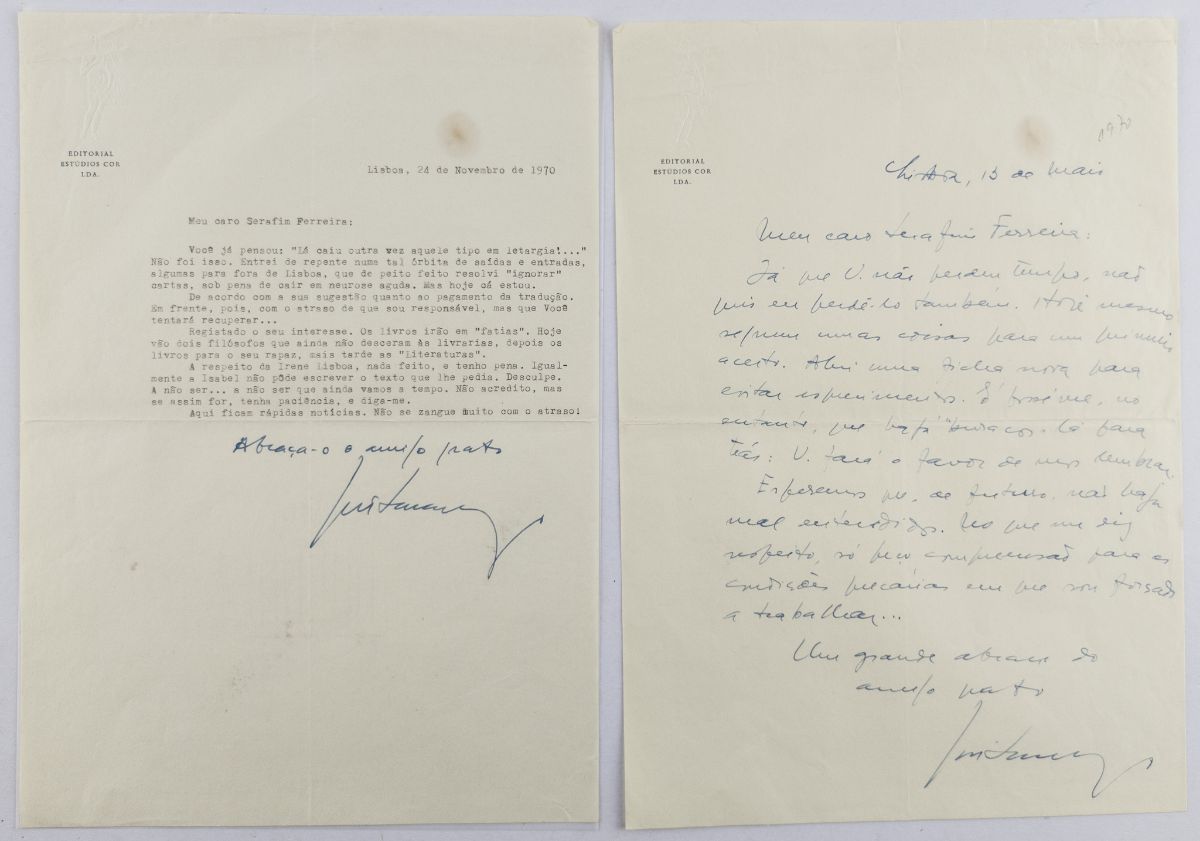 EDITORIAL
ESTÚDIOS COR
LDA.
Lisboa, 24 de Novembro de 1970
Meu caro Serafim Ferreira:
Você já pensou: "Lá caiu outra vez aquele tipo em letargia!..."
Não foi isso. Entrei de repente numa tal órbita de saídas e entradas,
algumas para fora de Lisboa, que de peito feito resolvi "ignorar"
cartas, sob pena de cair em neurose aguda. Mas hoje cá estou.
De acordo com a sua sugestão quanto ao pagamento da tradução.
Em frente, pois, com o atraso de que sou responsável, mas que Você
tentará recuperar...
Registado o seu interesse. Os livros irão em "fatias". Hoje
vão dois filósofos que ainda não desceram às livrarias, depois os
livros para o seu rapaz, mais tarde as "Literaturas".
A respeito da Irene Lisboa, nada feito, e tenho pena. Igual-
mente a Isabel não pôde escrever o texto que lhe pedia. Desculpe.
A não ser... a não ser que ainda vamos a tempo. Não acredito, mas
se assim for, tenha paciência, e diga-me.
Aqui ficam rápidas notícias. Não se zangue muito com o atraso!
Abraça-o o amigo grato
EDITORIAL
ESTÚDIOS COR
LDA.
1970
Lisboa, 13 de Maio
Meu caro Serafim Ferreira:
Já que V. não perdeu tempo, não
quis eu perdê-lo também. Hoje mesmo
seguem umas coisas para um primeiro
acerto. Abri uma ficha nova para
evitar esquecimentos. É possível, no
entanto, que haja "buracos" lá para
trás: V. fará o favor de nos lembrar.
Esperemos que, de futuro, não haja
mal entendidos. No que me diz
respeito, só peço compreensão para as
condições precárias em que sou forçado
a trabalhar...
Um grande abraço do
amigo grato